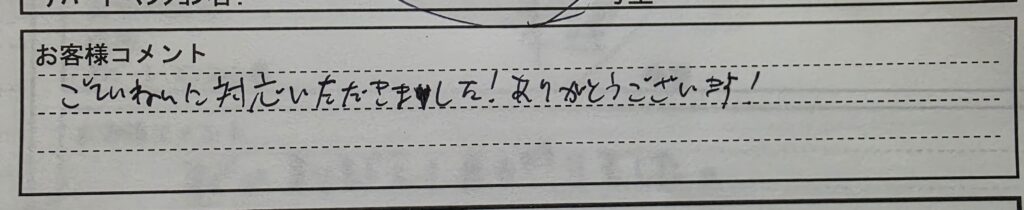 お客様コメント
ごていねいに対応いただきました!ありがとうございます!